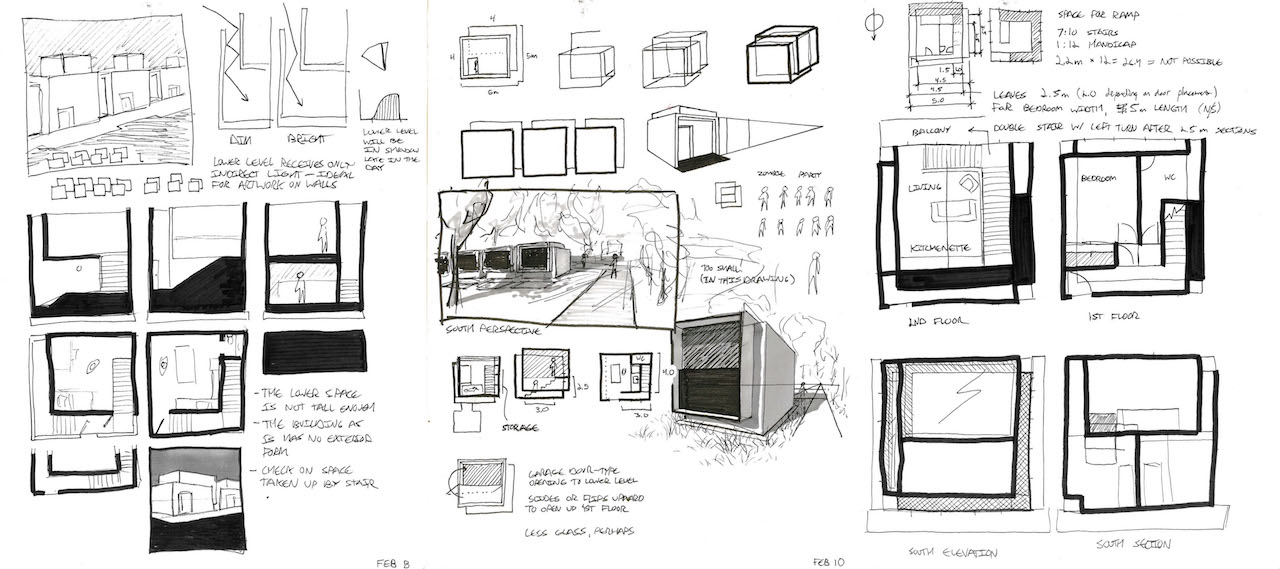 DIM
BRIGHT
LOWER LEVEL RECEIVES ONLY
INDIRECT LIGHT - IDEAL
FOR ARTWORK ON WALLS
LOWER LEVEL
WILL BE
IN SHADOW
LATE IN THE
DAY
- THE LOWER SPACE
IS NOT TALL ENOUGH
- THE BUILDING AS
IS HAS NO EXTERIOR
FORM
- CHECK ON SPACE
TAKEN UP BY STAIR
FEB 8
4
4
5m
6m
ZOMBIE PARTY
TOO SMALL
(IN THIS DRAWING)
SOUTH PERSPECTIVE
STORAGE
2.5
3.0
WC
4.0
3.0
GARAGE DOOR-TYPE
OPENING TO LOWER LEVEL
SLIDES OR FLIPS UPWARD
TO OPEN UP 1ST FLOOR
LESS GLASS, PERHAPS
FEB 10
1.5
4.5
4.5
5.0
SPACE FOR RAMP
7:10 STAIRS
1:12 HANDICAP
2.2m × 12 = 26.4 = NOT POSSIBLE
LEAVES 2.5m (2.0 depending on door placement)
FOR BEDROOM WIDTH, 5m LENGTH (N/S)
BALCONY
DOUBLE STAIR W/ LEFT TURN AFTER 2.5m SECTIONS
LIVING
KITCHENETTE
BEDROOM
WC
2ND FLOOR
1ST FLOOR
SOUTH ELEVATION
SOUTH SECTION